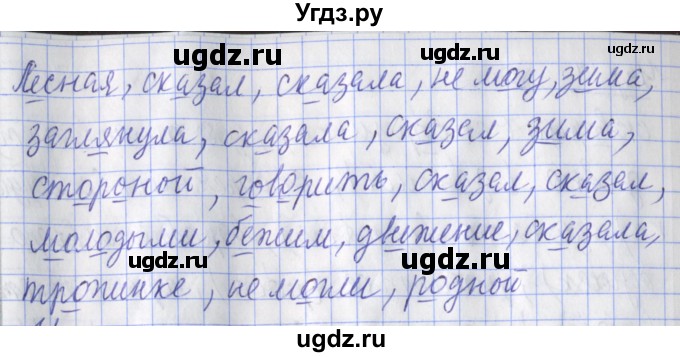 Угдз.ру
Лесная, сказал, сказала, не могу, зима,
заглянула, сказала, сказал, зима,
стороной, говорить, сказал, сказал,
молодыми, бежим, движение, сказала,
тропинке, не могли, родной
ugdz.ru ugdz.ru
ugdz.ru ugdz.ru
ugdz.ru ugdz.ru
ugdz.ru ugdz.ru